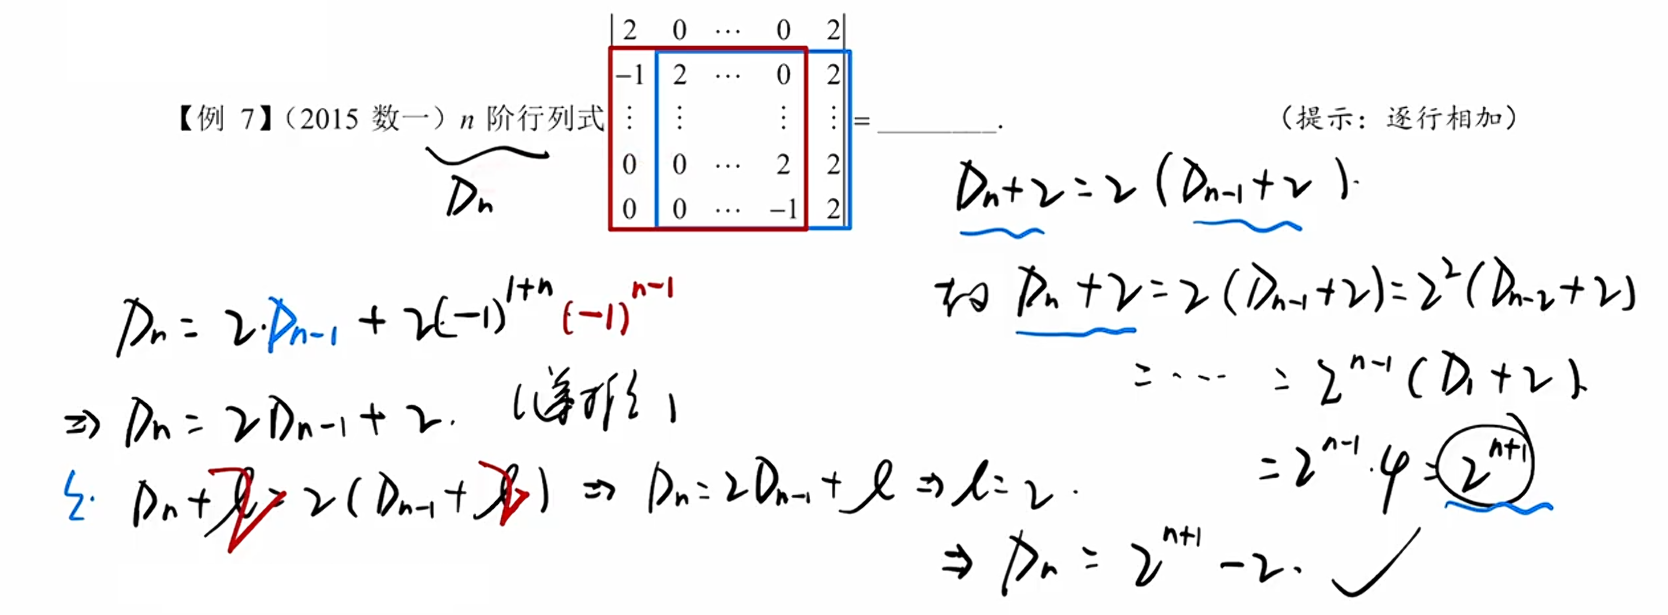 【例 7】(2015 数一) n 阶行列式
| 2 0 ⋯ 0 2 |
| −1 2 ⋯ 0 2 |
| ⋮ ⋮ ⋮ ⋮ |
| 0 0 ⋯ 2 2 |
| 0 0 ⋯ −1 2 |
= ________.
(提示：逐行相加)
Dn
Dn = 2·Dn-1 + 2(-1)^{1+n} (-1)^{n-1}
⇒ Dn = 2Dn-1 + 2.
Dn + l = 2(Dn-1 + l) ⇒ Dn = 2Dn-1 + l ⇒ l = 2.
Dn + 2 = 2(Dn-1 + 2).
Dn + 2 = 2(Dn-1 + 2) = 2^2(Dn-2 + 2)
= ⋯ = 2^{n-1}(D1 + 2)
= 2^{n-1}·4 = 2^{n+1}
⇒ Dn = 2^{n+1} - 2. ✓